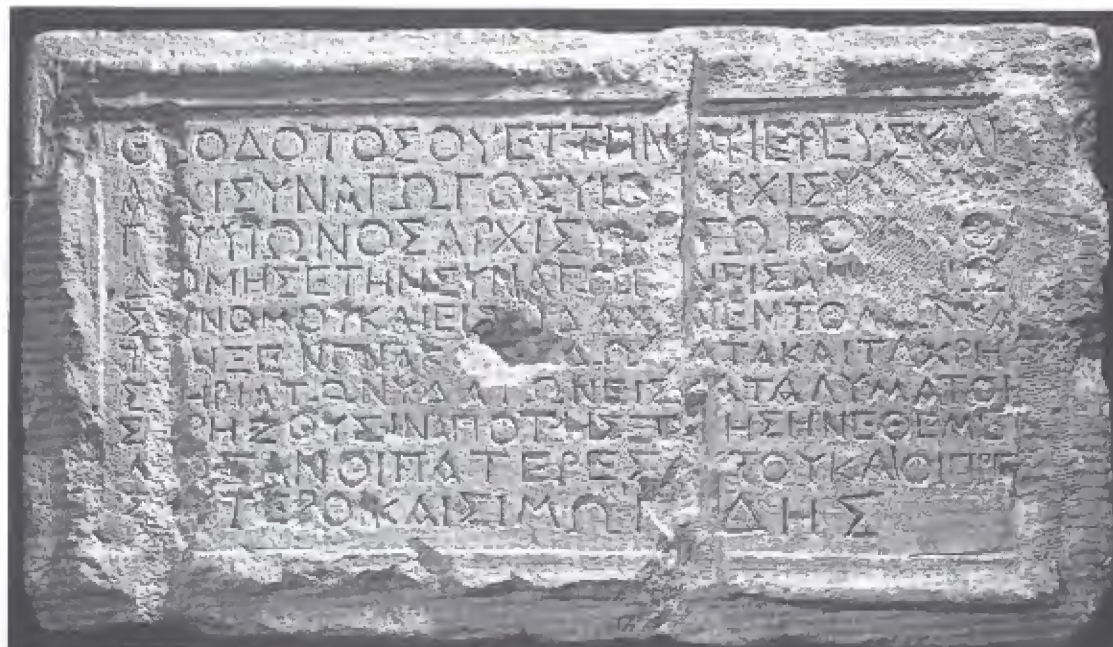 ΘΕΟΔΟΤΟΣ ΟΥΕΤΤΗΝΟΥ ΙΕΡΕΥΣ ΚΑΙ
ΑΡΧΙΣΥΝΑΓΩΓΟΣ ΥΙΟΣ ΑΡΧΙΣΥ
Γ Υ ΥΙΩΝΟΣ ΑΡΧΙΣΥΝ ΓΩΓΟΥ Ο
ΔΟΜΗΣΕ ΤΗΝ ΣΥΝΑΓΩΓ Ν ΕΙΣ ΑΝ Ω
Σ Ν ΝΟΜΟΥ ΚΑΙ ΕΙΣ ΙΔΑΧΗΝ ΕΝΤΟΛ Ν ΚΑΙ
Τ Ν ΞΕΝΩΝΑ Κ ΔΩΜΑΤΑ ΚΑΙ ΤΑ ΧΡΗ
Σ ΗΡΙΑ ΤΩΝ ΥΔΑΤΩΝ ΕΙΣ ΚΑΤΑΛΥΜΑ ΤΟΙ
Σ ΡΗΖΟΥΣΙΝ ΑΠΟ ΤΗΣ ΞΕ ΗΣ ΗΝ ΕΘΕΜΕ
Λ ΣΑΝ ΟΙ ΠΑΤΕΡΕΣ Α ΤΟΥ ΚΑΙ ΟΙ ΠΡΕ
Σ ΤΕΡΟΙ ΚΑΙ ΣΙΜΩΝ ΔΗΣ